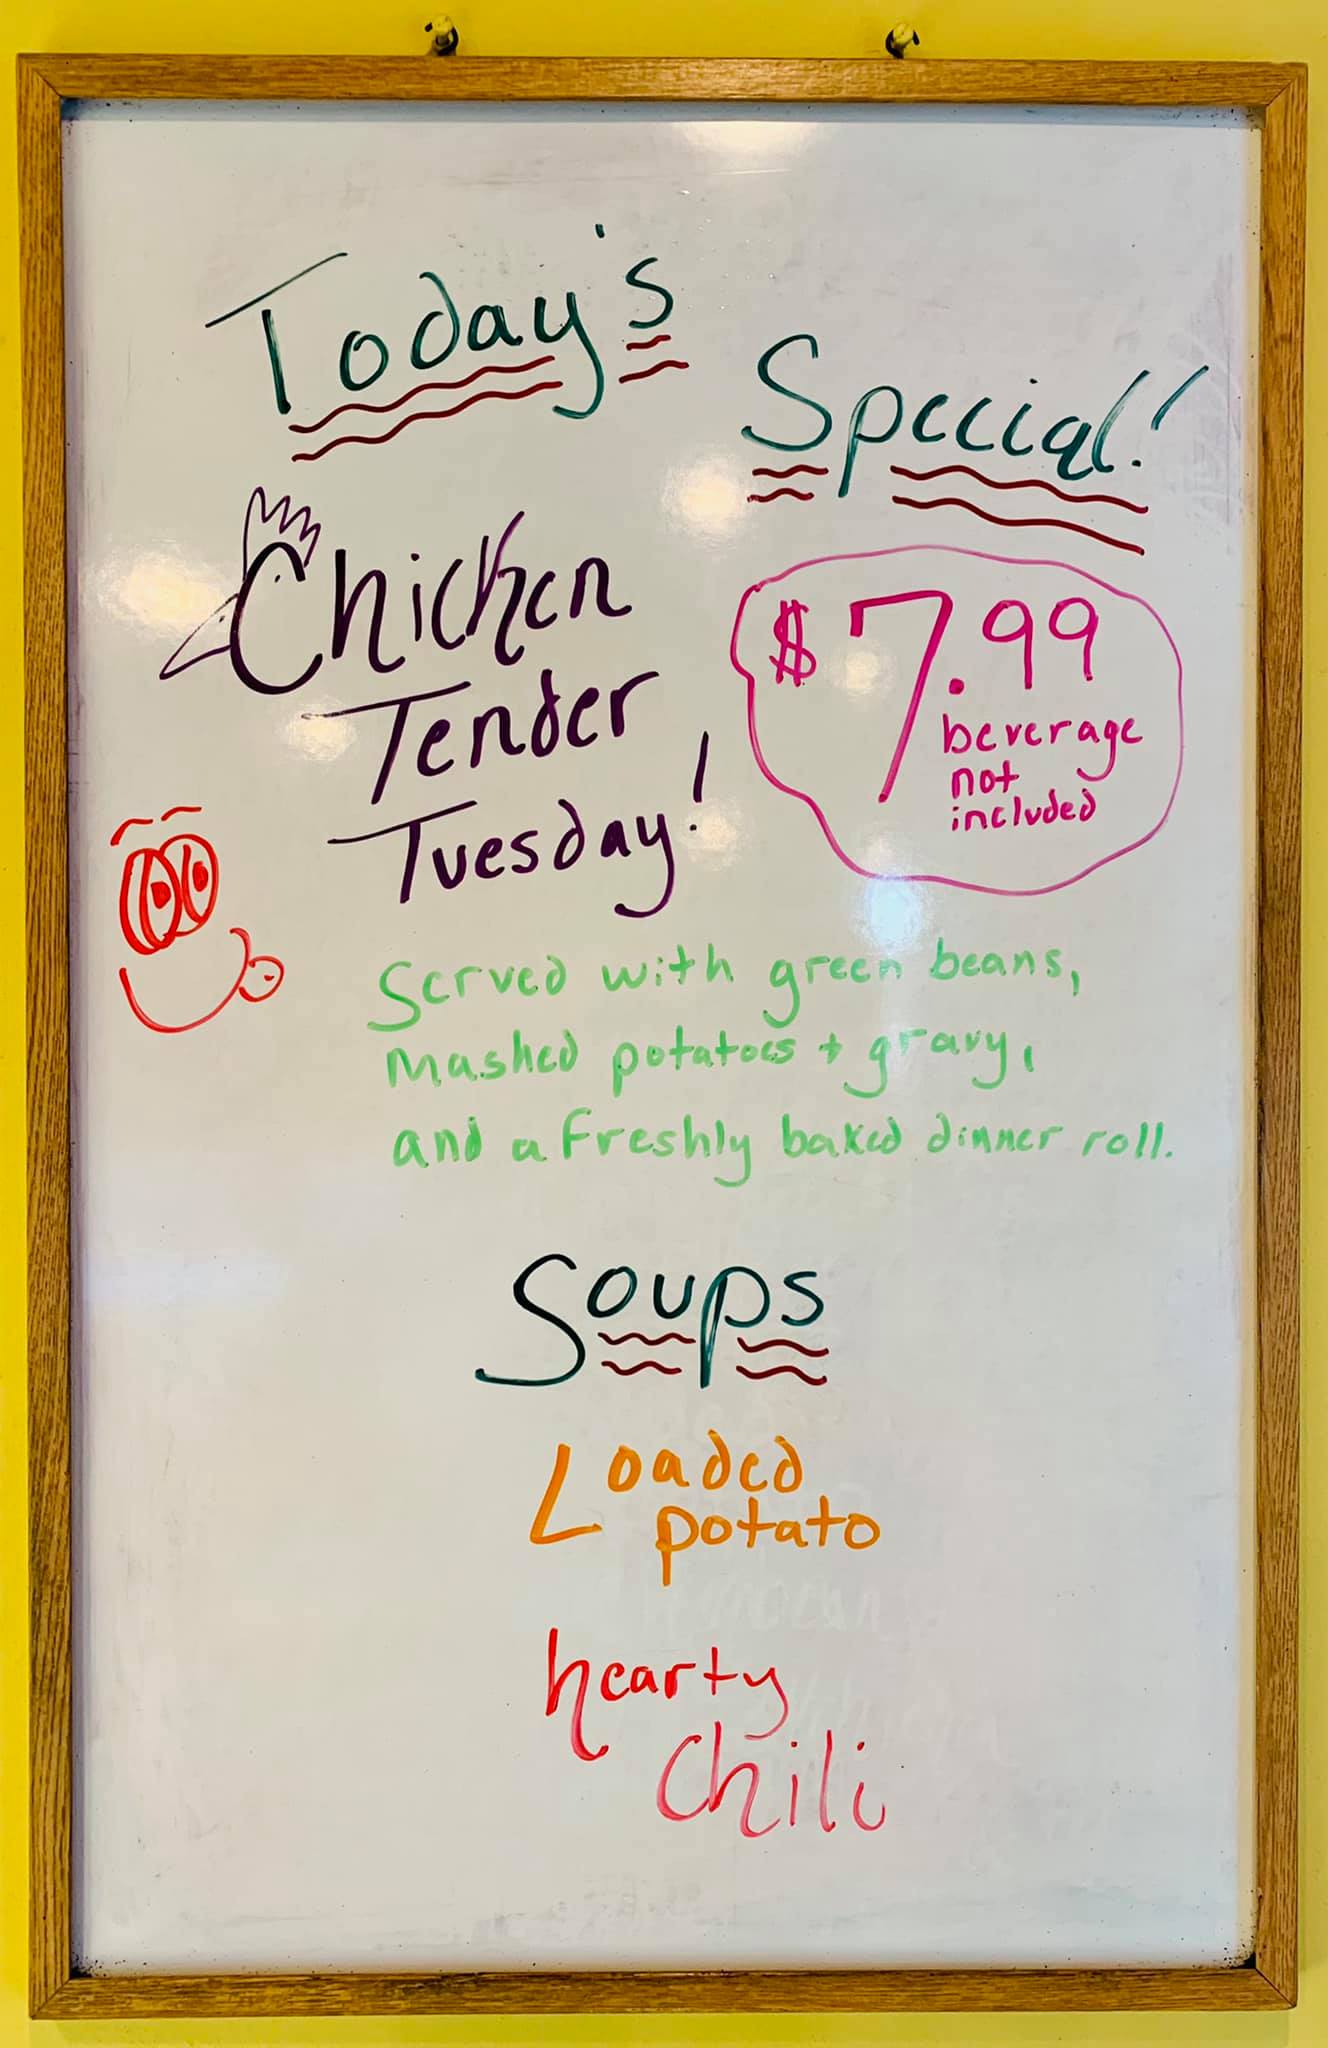 Today's
Special!
Chicken
Tender
Tuesday!
$7.99
beverage
not
included
Served with green beans,
mashed potatoes + gravy,
and a freshly baked dinner roll.
Soups
Loaded
potato
hearty
chili